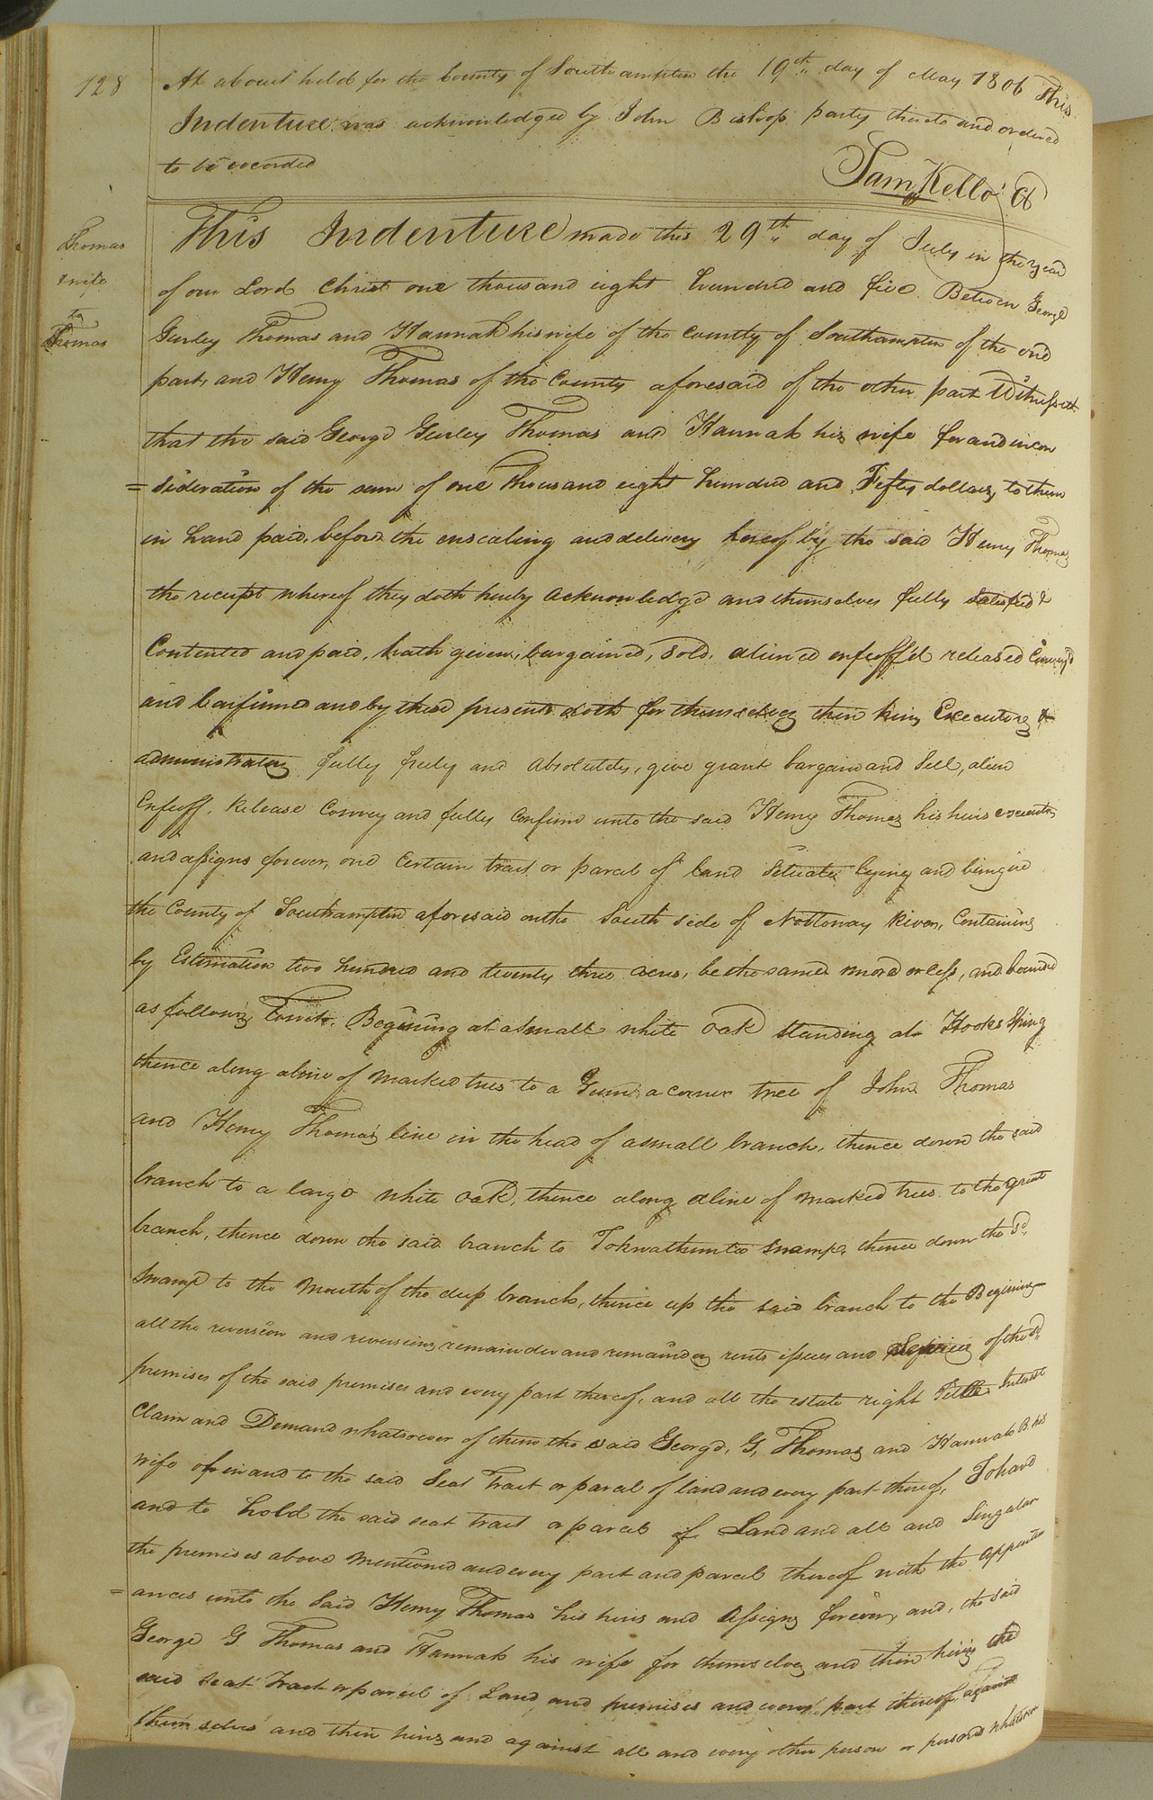 128
At a Court held for the County of Southampton the 19th day of May 1806 This
Indenture was acknowledged by John Bishop party thereto and ordered
to be recorded
Sam Kello Cl
Thomas
& wife
to
Thomas
This Indenture made this 29th day of July in the year
of our Lord Christ one thousand eight hundred and five Between George
Gurley Thomas and Hannah his wife of the County of Southampton of the one
part, and Henry Thomas of the County aforesaid of the other part Witnesseth
that the said George Gurley Thomas and Hannah his wife for and in con
=sideration of the sum of one Thousand eight hundred and Fifty dollars, to them
in hand paid, before the ensealing and delivery hereof by the said Henry Thomas
the receipt whereof they doth hereby acknowledge and themselves fully satisfied &
Contented and paid, hath given, bargained, sold, aliened enfeoff'd released Convey'd
and Confirmed and by these presents doth for themselves their heirs Executors &
administrators fully freely and absolutely, give grant bargain and Sell, alien
Enfeoff, Release Convey and fully Confirm unto the said Henry Thomas his heirs executors
and assigns forever, one Certain tract or parcel of land Situate lying and being in
the County of Southampton aforesaid on the South side of Nottoway River, Containing
by Estimation two hundred and twenty three acres, be the same more or less, and bounded
as follows, Towit, Begining at a small white oak standing at Hooks Spring
thence along a line of marked trees to a Gum a corner tree of John Thomas
and Henry Thomas's line in the head of a small branch, thence down the said
branch to a large white oak, thence along a line of marked trees to the great
branch, thence down the said branch to swamp, thence down the sd
Swamp to the mouth of the deep branch, thence up the said branch to the Begining
all the reversion and reversions remainder and remainders rents issues and of the sd
premises of the said premises and every part thereof, and all the estate right Title Interest
Claim and Demand whatsoever of them the said George, G, Thomas and Hannah B. his
wife of in and to the said Seat Tract or parcel of land and every part thereof, To have
and to hold the said seat tract or parcel of Land and all and Singular
the premises above mentioned and every part and parcel thereof with the appurten
=ances unto the said Henry Thomas his heirs and Assigns forever, and, the said
George G. Thomas and Hannah his wife for themselves and their heirs the
said seat Tract or parcel of Land and premises and every part thereof against
themselves and their heirs and against all and every other person or persons whatever